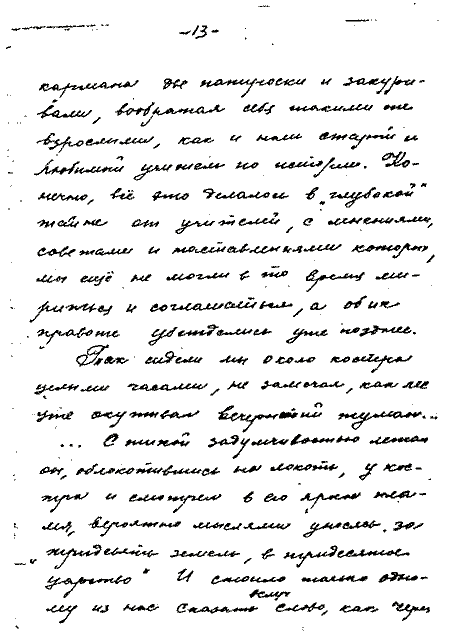 -13-
кармана две папироски и закури-
вали, воображая себя такими же
взрослыми, как и наш старый и
любимый учитель по истории. Ко-
нечно, всё это делалось в „глубокой"
тайне от учителей, с мнениями,
советами и наставлениями которых,
мы ещё не могли в то время ми-
риться и соглашаться, а об их
правоте убедились уже позднее.
Так сидели мы около костра
целыми часами, не замечая, как лес
уже окутывал вечерний туман...
... С тихой задумчивостью лежал
он, облокотившись на локоть, у кос-
тра и смотрел в его яркое пла-
мя, вероятно мыслями уносясь „за
тридевять земель, в тридесятое
царство" И стоило только одно-
му из нас сказать слово, как через